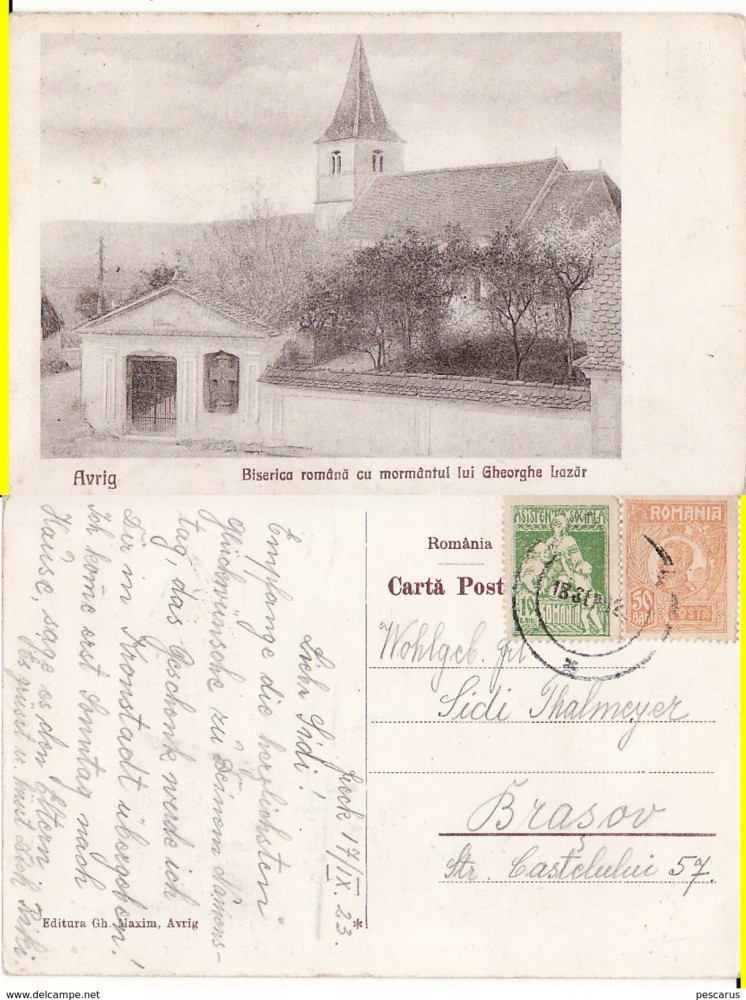 Avrig
Biserica română cu mormântul lui Gheorghe Lazăr
ASISTENȚA SOCIALĂ
10
ROMÂNIA
ROMANIA
50
BANI
POSTA
România
Cartă Post
Wohlgeb. Frl
Sidi Thalmeyer
Brasov
Str. Castelului 57.
Freck 17/IX. 23.
Liebe Sidi!
Empfange die herzlichsten
Glückwünsche zu Deinem Namens-
tag, das Geschenk werde ich
Dir in Kronstadt übergeben!
Ich komme erst Sonntag nach
Hause, sage es den Eltern.
Es grüsst u. küsst Dich
Editura Gh. Maxim, Avrig
*
pescarus